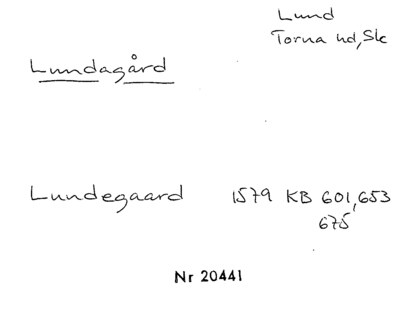 Lund
Torna hd, Sk
Lundagård
Lundegaard 1579 KB 601, 653
675
Nr 20441